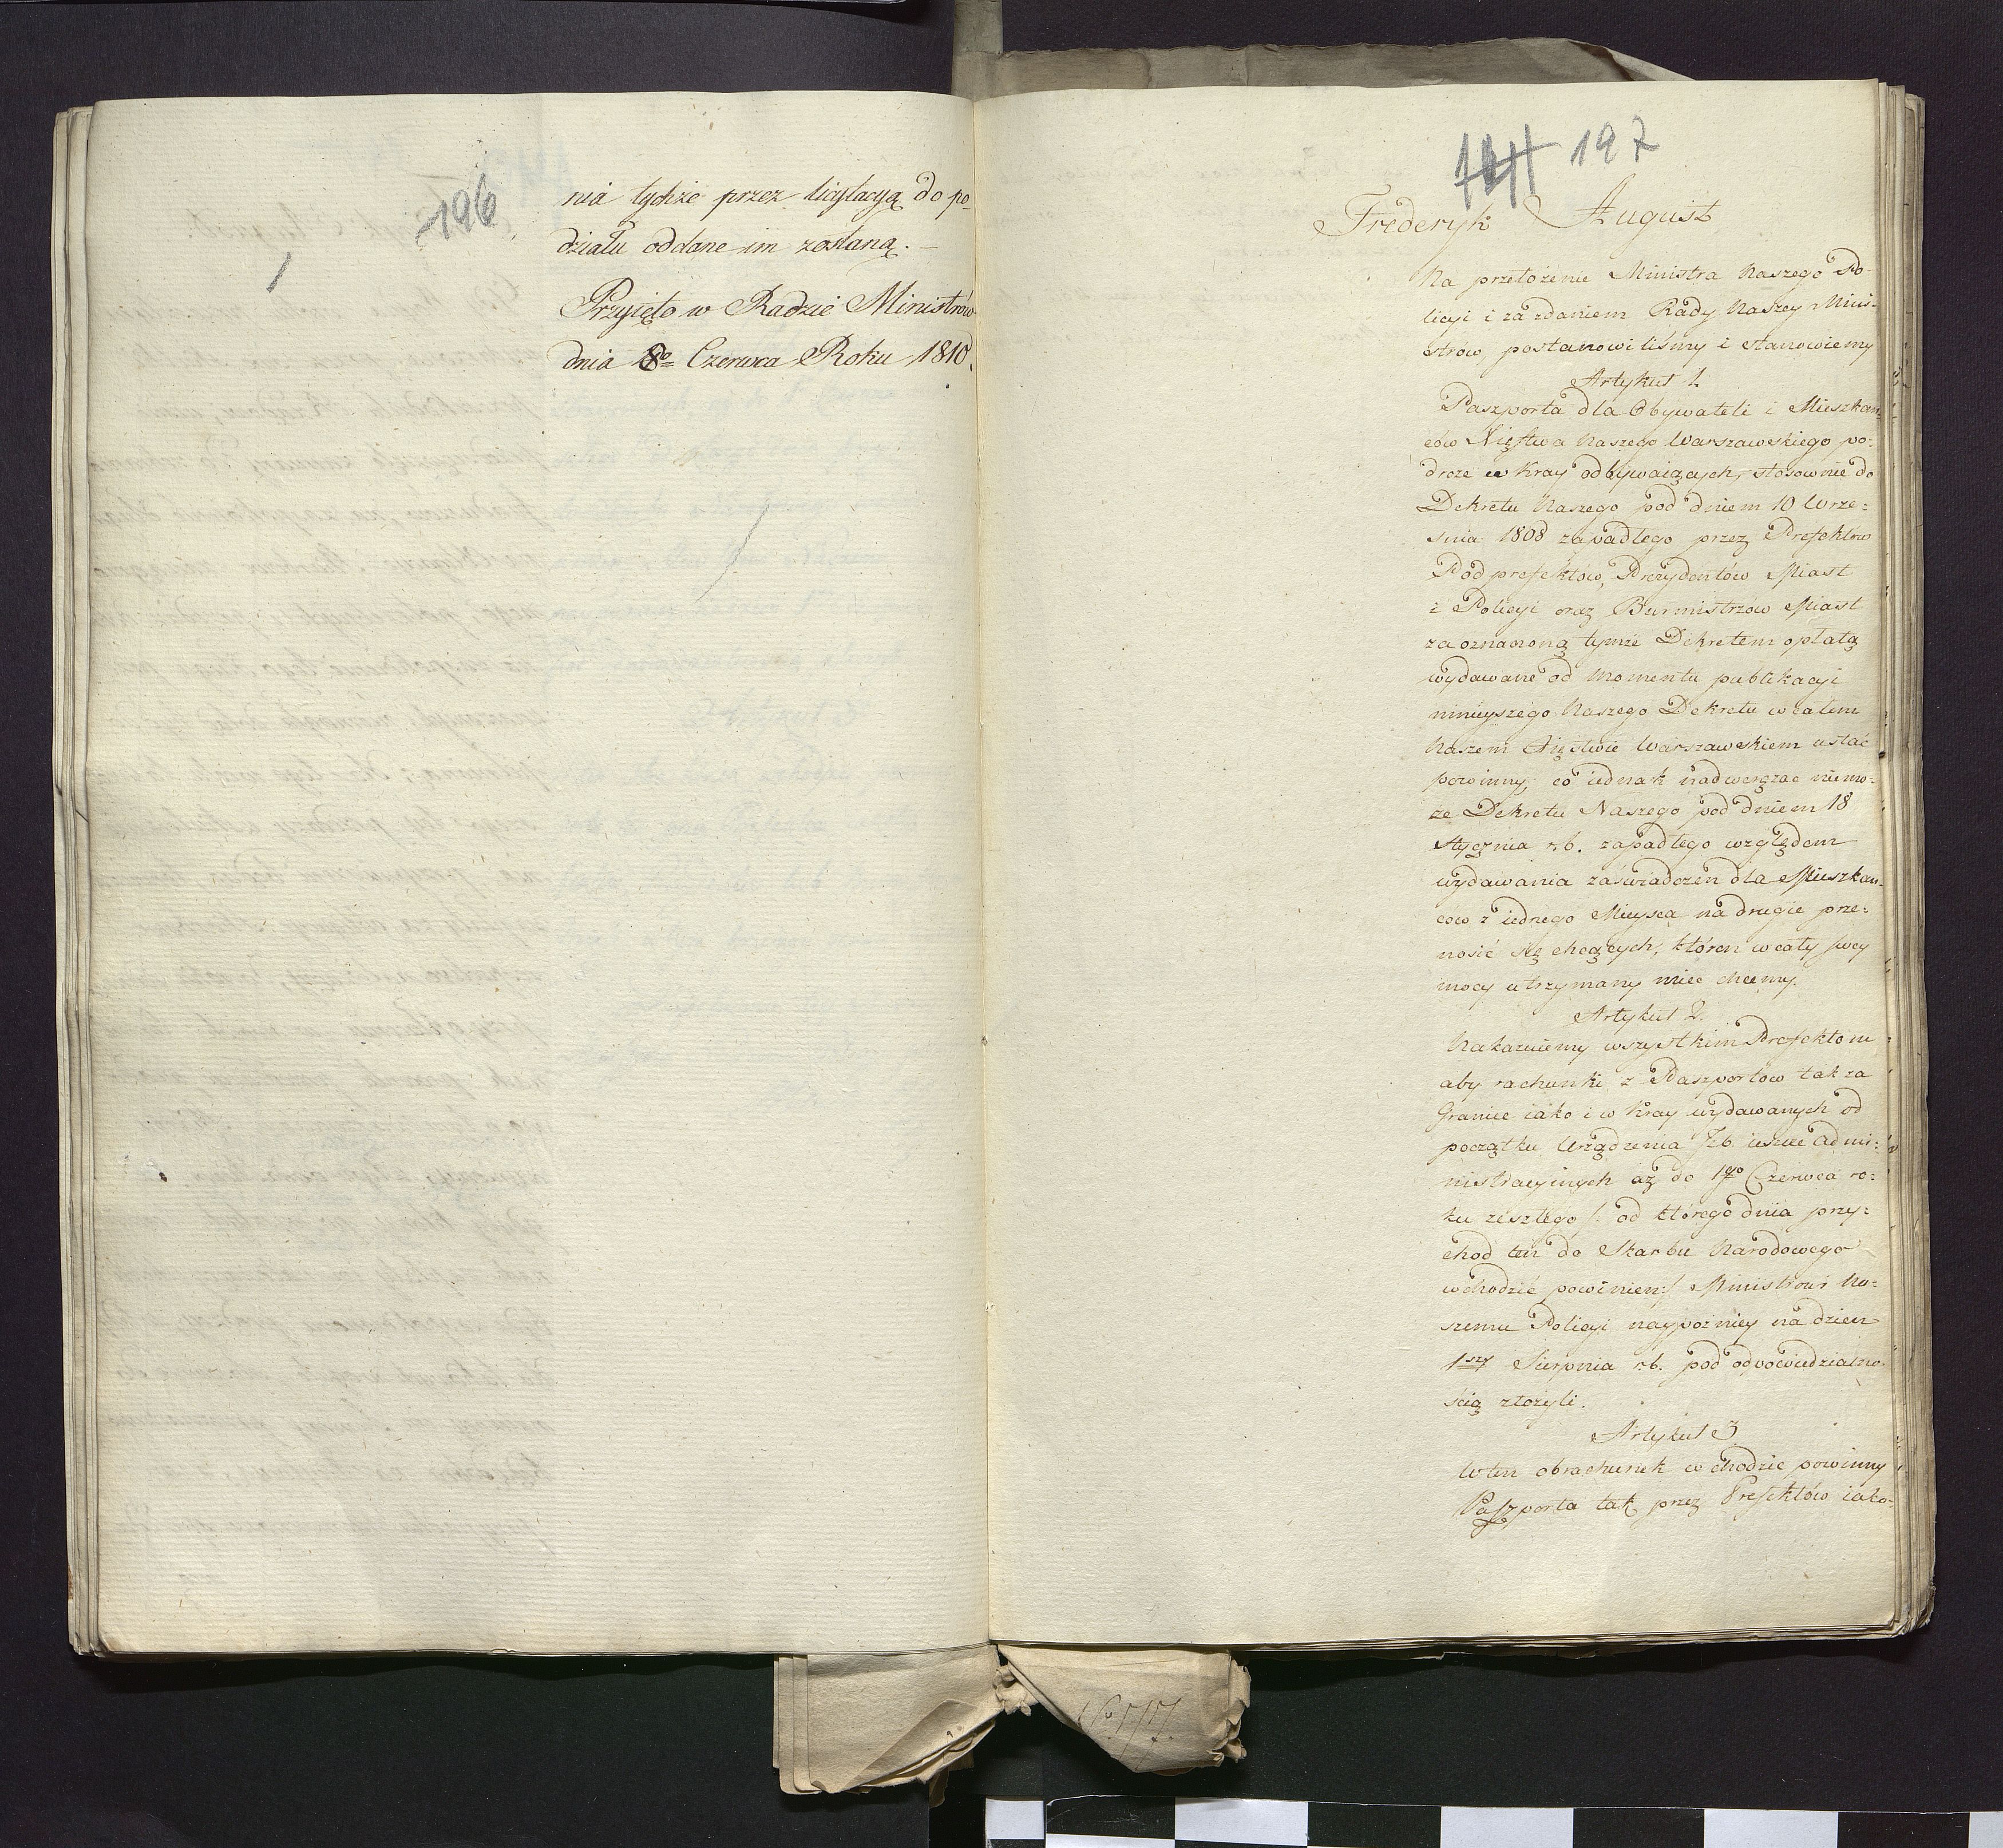 196
nia tychże przez licytacyą do po=
działu oddane im zostaną. –
Przyięto w Radzie Ministrów
dnia 8go Czerwca Roku 1810.
197
Frederyk August
Na przełożenie Ministra Naszego Po-
licyi i za zdaniem Rady Naszey Mini-
strów postanowiliśmy i stanowiemy
Artykuł 1.
Paszporta dla Obywateli i Mieszkań-
ców Xięstwa Naszego Warszawskiego po-
droże w Kray odbywaiących, stosownie do
Dekretu Naszego pod dniem 10 Wrze=
śnia 1808 zapadłego przez Prefektów
Podprefektów, Prezydentów Miast
i Policyi oraz Burmistrzów Miast
za oznaczoną tymże Dekretem opłatą
wydawane od Momentu publikacyi
ninieyszego Naszego Dekretu w całem
Naszem Xięstwie Warszawskiem ustać
powinny, co iednak nadweręzac niemo-
że Dekretu Naszego pod dniem 18
Stycznia r. b. zapadłego względem
wydawania zaświadczeń dla Mieszkań-
ców z iednego Mieysca na drugie prze=
nosić się chcących, któren w cały swey
mocy utrzymany mieć chcemy.
Artykuł 2.
Nakazuiemy wszystkim Prefektom
aby rachunki z Paszportów tak za
Granice iako i w Kray wydawanych od
początku Urządzenia Izb ieszcze Admi=
nistracyinych aż do 1go Czerwca ro=
ku zeszłego /: od którego dnia przy=
chod ten do Skarbu Narodowego
wchodzić powinien :/ Ministrowi Na=
szemu Policyi naypoźniey na dzień
1szy Sierpnia r. b. pod odpowiedzialno-
ścią złożyli.
Artykuł 3
W ten obrachunek wchodzić powinny
Paszporta tak przez Prefektów iako-